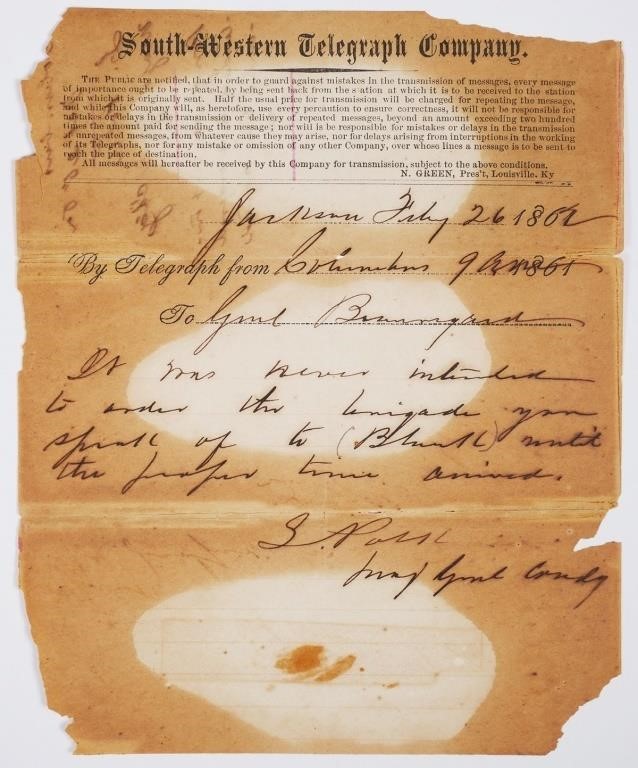 South-Western Telegraph Company.
THE PUBLIC are notified, that in order to guard against mistakes in the transmission of messages, every message
of importance ought to be repeated, by being sent back from the station at which it is to be received to the station
from which it is originally sent. Half the usual price for transmission will be charged for repeating the message,
and while this Company will, as heretofore, use every percaution to ensure correctness, it will not be responsible for
mistakes or delays in the transmission or delivery of repeated messages, beyond an amount exceeding two hundred
times the amount paid for sending the message; nor will is be responsible for mistakes or delays in the transmission
of unrepeated messages, from whatever cause they may arise, nor for delays arising from interruptions in the working
of its Telegraphs, nor for any mistake or omission of any other Company, over whose lines a message is to be sent to
reach the place of destination.
All messages will hereafter be received by this Company for transmission, subject to the above conditions.
N. GREEN, Pres't, Louisville, Ky
Jackson Feby 26 1862
By Telegraph from Columbus 9 1861
To Genl Beauregard
It was never intended
to order the brigade you
speak of to (Blank) until
the proper time arrived.
L Polk
Maj Genl Comdg